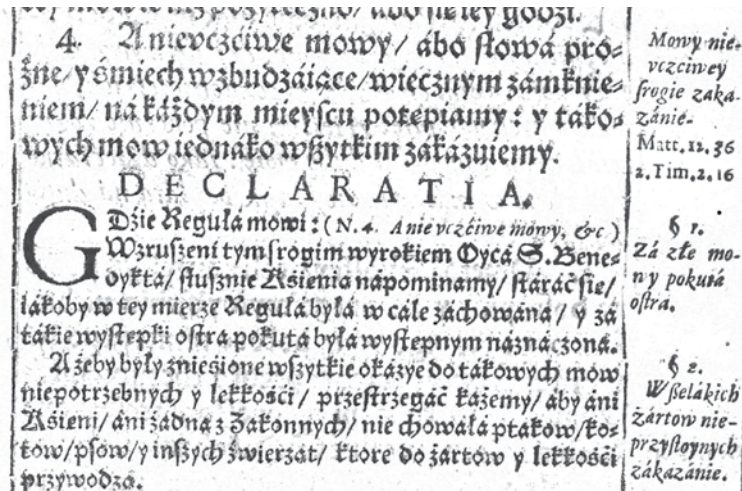 4. A nievczćiwe mowy/ ábo słowá pro-
żne/ y śmiech wzbudzáiące/ wiecznym zámknie-
niem/ ná káżdym mieyscu potępiamy: y táko-
wych mow iednáko wszytkim zákázuiemy.
DECLARATIA.
GDźie Regułá mowi: (N. 4. A nie vczćiwe mowy, &c.)
Wzruszeni tym srogim wyrokiem Oycá S. Bene-
dyktá/ słusznie Xsienia nápominamy/ stáráć się/
iákoby w tey mierze Regułá byłá w cále záchowána/ y zá
tákie występki ostra pokutá byłá występnym náznáczona.
A żeby były znieśione wszytkie okázye do tákowych mow
niepotrzebnych y lekkośći/ przestrzegáć każemy/ áby áni
Xsieni/ áni żadna z Zakonnych/ nie chowáłá ptakow/ ko-
tow/ psow/ y inszych źwierząt/ ktore do żártow y lekkośći
przywodzą.
Mowy nie-
vczciwey
srogie zaka-
zánie.
Matt. 12. 36
2. Tim. 2. 16
§ 1.
Zá złe mo-
wy pokutá
ostra.
§ 2.
Wszelákich
żártow nie-
przystoynych
zákázánie.